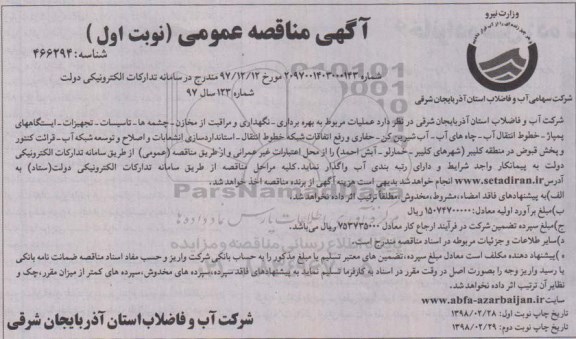 وزارت نیرو
آگهی مناقصه عمومی (نوبت اول)
شناسه: ۴۶۶۲۹۴
شماره ۲۰۹۷۰۰۱۳۰۳۰۰۰۱۲۳ مورخ ۹۷/۱۲/۱۲ مندرج در سامانه تدارکات الکترونیکی دولت
شماره ۱۲۳ سال ۹۷
شرکت سهامی آب و فاضلاب استان آذربایجان شرقی
شرکت آب و فاضلاب استان آذربایجان شرقی در نظر دارد عملیات مربوط به بهره برداری - نگهداری و مراقبت از مخازن - چشمه ها - تاسیسات - تجهیزات - ایستگاههای
پمپاژ - خطوط انتقال آب - چاه های آب - آب شیرین کن - حفاری و رفع اتفاقات شبکه خطوط انتقال - استانداردسازی انشعابات و اصلاح و توسعه شبکه آب - قرائت کنتور
و پخش قبوض در منطقه کلیبر (شهرهای کلیبر - خمارلو - آبش احمد) را از محل اعتبارات غیر عمرانی و از طریق مناقصه (عمومی) از طریق سامانه تدارکات الکترونیکی
دولت به پیمانکار واجد شرایط و دارای رتبه بندی آب واگذار نماید. کلیه مراحل مناقصه از طریق سامانه تدارکات الکترونیکی دولت (ستاد) به
آدرس www.setadiran.ir انجام خواهد شد بدیهی است هزینه آگهی از برنده مناقصه اخذ خواهد شد.
الف) به پیشنهادهای فاقد امضاء، مشروط، مخدوش، مطلقا ترتیب اثر داده نخواهد شد.
ب) مبلغ برآورد اولیه معادل: ۱۵۰۷۴۷۰۰۰۰۰ ریال
ج) مبلغ سپرده تضمین شرکت در فرآیند ارجاع کار معادل ۷۵۳۷۳۵۰۰۰ ریال می باشد.
د) سایر اطلاعات و جزئیات مربوطه در اسناد مناقصه مندرج است.
ه) پیشنهاد دهنده مکلف است معادل مبلغ سپرده، تضمین های معتبر تسلیم یا مبلغ مذکور را به حساب بانکی شرکت واریز و حسب مفاد اسناد مناقصه ضمانت نامه بانکی
یا رسید واریز وجه را بصورت اصل در وقت مقرر در اسناد به کارفرما تسلیم نماید به پیشنهادهای فاقد سپرده، سپرده های مخدوش، سپرده های کمتر از میزان مقرر، چک و
نظایر آن ترتیب اثر داده نخواهد شد.
سایت www.abfa-azarbaijan.ir
تاریخ چاپ نوبت اول: ۱۳۹۸/۰۲/۲۸
تاریخ چاپ نوبت دوم: ۱۳۹۸/۰۲/۲۹
شرکت آب و فاضلاب استان آذربایجان شرقی